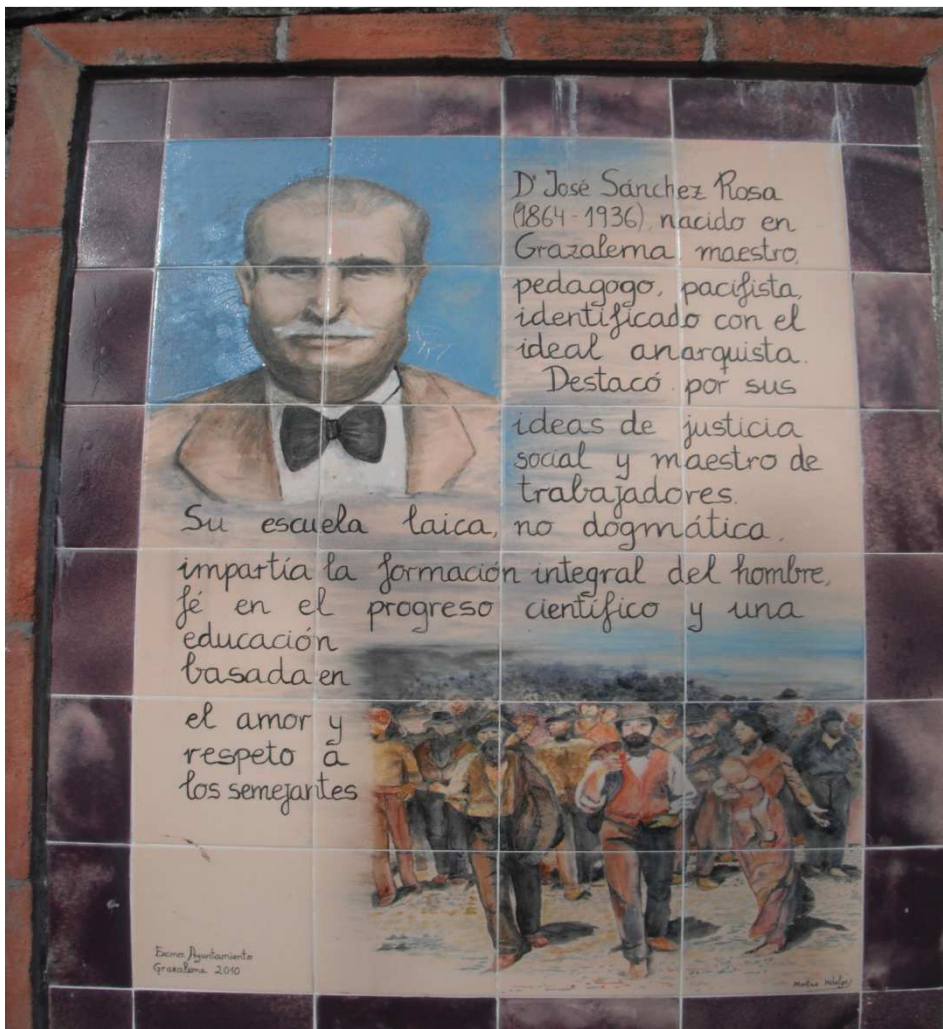 D. José Sánchez Rosa
(1864-1936), nacido en
Grazalema, maestro,
pedagogo, pacifista,
identificado con el
ideal anarquista.
Destacó por sus
ideas de justicia
social y maestro de
trabajadores.
Su escuela laica, no dogmática,
impartía la formación integral del hombre,
fé en el progreso científico y una
educación
basada en
el amor y
respeto a
los semejantes
Excmo Ayuntamiento
Grazalema 2010
Hidalgo